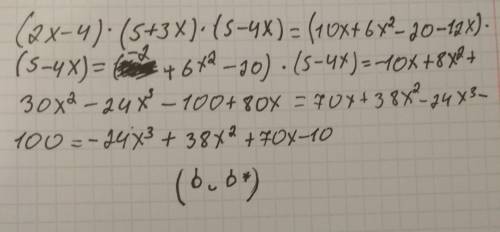 (2x-4)·(5+3x)·(5-4x)=(10x+6x²-20-12x)·
(5-4x)=(-2 +6x²-20)·(5-4x)=-10x+8x²+
30x²-24x³-100+80x=70x+38x²-24x³-
100=-24x³+38x²+70x-10
(b ᴗ b*)